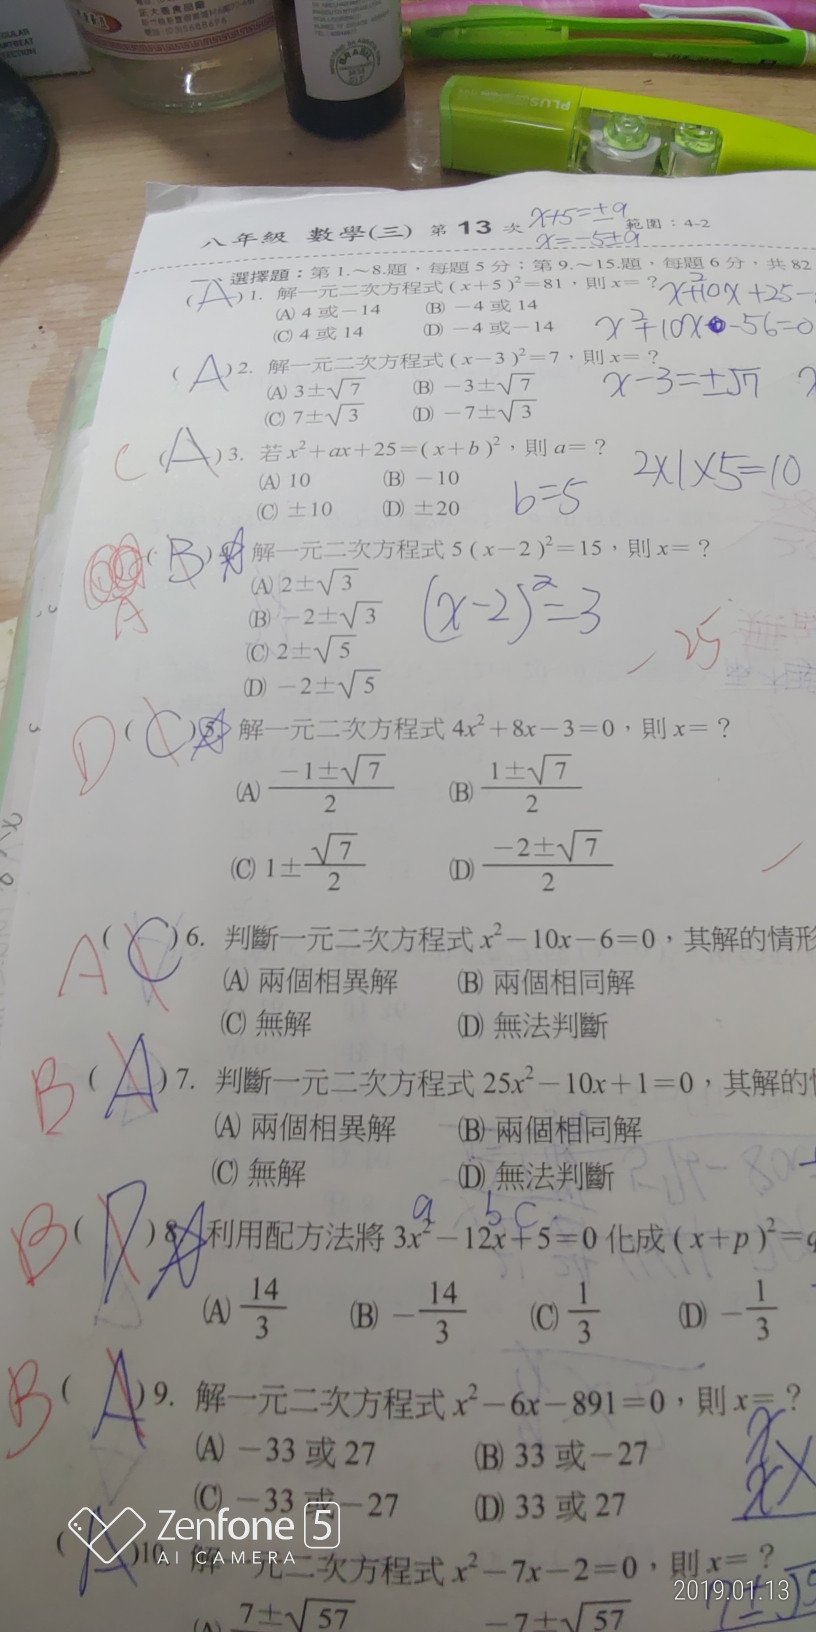 正大養食品廠
PLUS
八年級 數學(三) 第 13 次 範圍:4-2
x+5=±9
x=-5±9
一、選擇題:第1.~8.題,每題5分;第9.~15.題,每題6分,共82
(A)1. 解一元二次方程式(x+5)²=81,則x=?
x²+10x+25-
(A) 4或-14 (B) -4或14
(C) 4或14 (D) -4或-14
x²+10x-56=0
(A)2. 解一元二次方程式(x-3)²=7,則x=?
(A) 3±√7 (B) -3±√7
(C) 7±√3 (D) -7±√3
x-3=±√7
C (A)3. 若x²+ax+25=(x+b)²,則a=?
(A) 10 (B) -10
(C) ±10 (D) ±20
b=5
2x1x5=10
A (B) 解一元二次方程式5(x-2)²=15,則x=?
(A) 2±√3
(B) -2±√3
(C) 2±√5
(D) -2±√5
(x-2)²=3
25
D (C)5. 解一元二次方程式4x²+8x-3=0,則x=?
(A) (-1±√7)/2 (B) (1±√7)/2
(C) 1±√7/2 (D) (-2±√7)/2
A (C)6. 判斷一元二次方程式x²-10x-6=0,其解的情形
(A) 兩個相異解 (B) 兩個相同解
(C) 無解 (D) 無法判斷
B (A)7. 判斷一元二次方程式25x²-10x+1=0,其解的
(A) 兩個相異解 (B) 兩個相同解
(C) 無解 (D) 無法判斷
a b c
B (D)8. 利用配方法將3x²-12x+5=0化成(x+p)²=q
(A) 14/3 (B) -14/3 (C) 1/3 (D) -1/3
B (A)9. 解一元二次方程式x²-6x-891=0,則x=?
(A) -33或27 (B) 33或-27
(C) -33或-27 (D) 33或27
(A)10. 解一元二次方程式x²-7x-2=0,則x=?
(A) 7±√57 -7±√57
Zenfone 5
AI CAMERA
2019.01.13